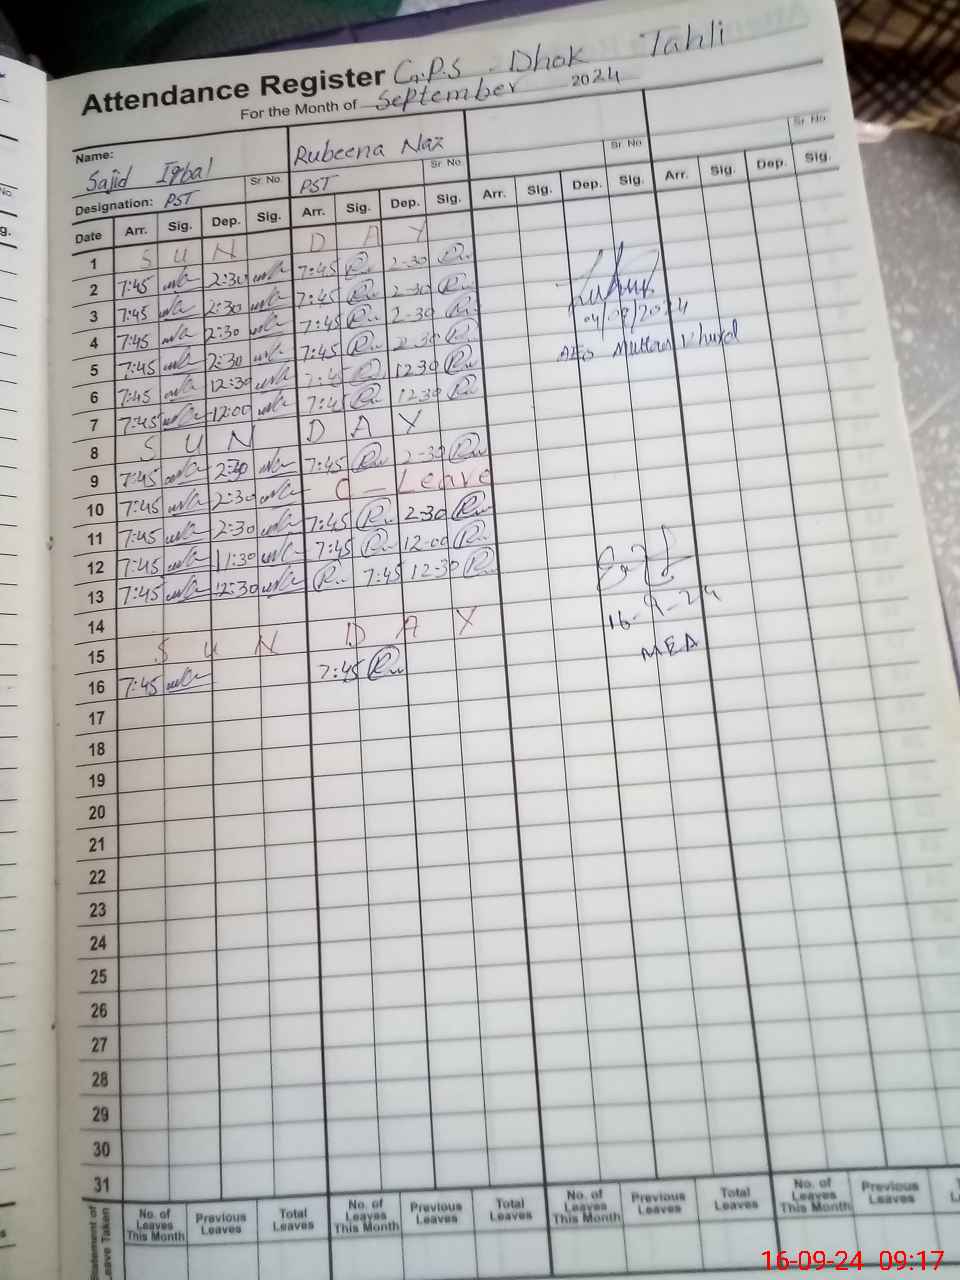 Attendance Register G.P.S Dhok Tahli
For the Month of September 2024
Name: Sajid Iqbal Sr. No Rubeena Naz Sr. No Sr. No Sr. No
Designation: PST PST
Date Arr. Sig. Dep. Sig. Arr. Sig. Dep. Sig. Arr. Sig. Dep. Sig. Arr. Sig. Dep. Sig.
1 S U N D A Y
2 7:45 2:30 7:45 2-30
3 7:45 2:30 7:45 2-30
4 7:45 2:30 7:45 2-30 04/09/2024
5 7:45 2:30 7:45 2-30 AEO
6 7:45 12:30 7:45 12:30
7 7:45 12:00 7:45 12:30
8 S U N D A Y
9 7:45 2:30 7:45 2-30
10 7:45 2:30 C - Leave
11 7:45 2:30 7:45 2-30
12 7:45 11:30 7:45 12-00
13 7:45 12:30 7:45 12-30
14 16-9-24
15 S U N D A Y MEA
16 7:45 7:45
17
18
19
20
21
22
23
24
25
26
27
28
29
30
31
Statement of Leave Taken No. of Leaves This Month Previous Leaves Total Leaves No. of Leaves This Month Previous Leaves Total Leaves No. of Leaves This Month Previous Leaves Total Leaves No. of Leaves This Month Previous Leaves
16-09-24 09:17